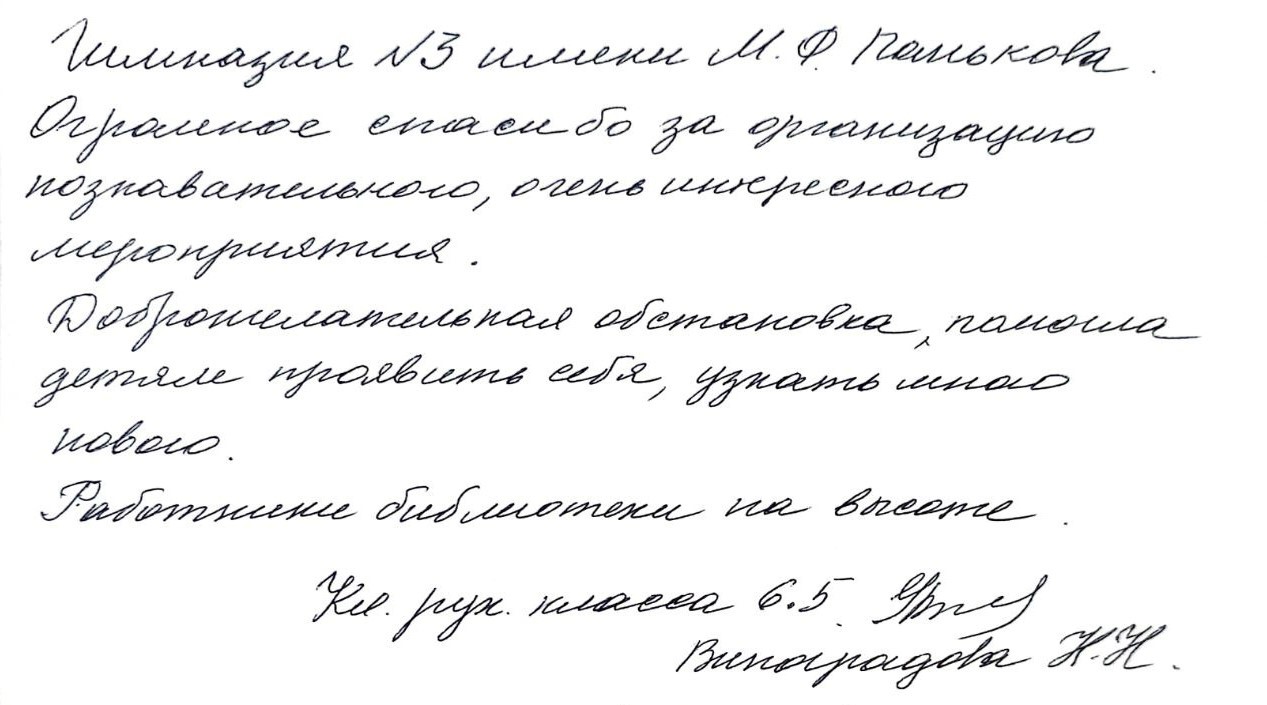 Гимназия N3 имени М.Ф. Панькова.
Огромное спасибо за организацию
познавательного, очень интересного
мероприятия.
Доброжелательная обстановка, помогла
детям проявить себя, узнать много
нового.
Работники библиотеки на высоте.
Кл. рук. класса 6.5
Виноградова Н.Н.